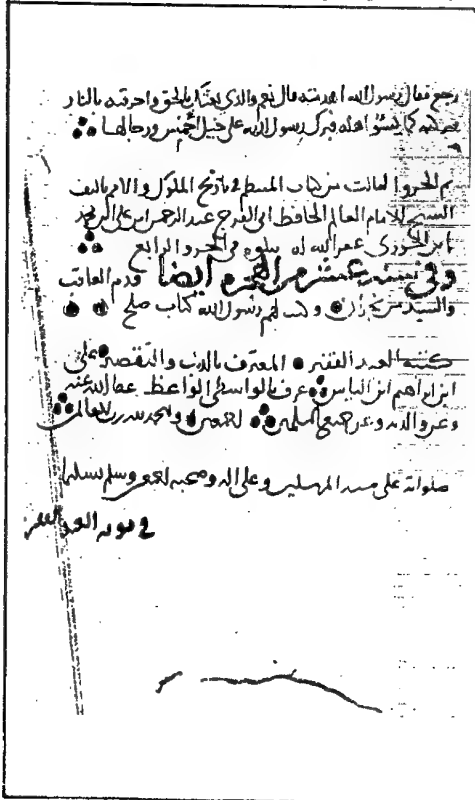 رجع فقال رسول الله اهدمته قال نعم والذي بعثك بالحق واحرقته بالنار
فبرك رسول الله على خيل أحمس ورجالها
تم الجزو الثالث من كتاب المنتظم في تاريخ الملوك والامم تاليف
الشيخ الامام العالم الحافظ ابى الفرج عبد الرحمن ابن على ابن محمد
ابن الجوزى غفر الله له يتلوه فى الجزو الرابع
وفي سنه عشر من الهجره ايضا قدم العاقب
والسيد من نجران وكتب لهم رسول الله كتاب صلح
كتبه العبد الفقير المعترف بالذنب والتقصير على
ابن ابراهيم ابن الياس عرف بالواسطى الواعظ عفا الله عنه
وعن والديه وعن جميع المسلمين اجمعين والحمد لله رب العالمين
صلواته على سيد المرسلين وعلى اله وصحبه اجمعين وسلم تسليما
في نوبه العبد الفقير